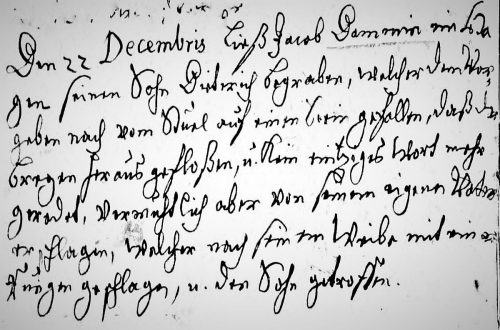 Den 22 Decembris ließ Jacob Dammin
seinen Sohn Dieterich begraben, welcher dem Vor-
geben nach vom Stuel auf einen Stein gefallen, daß
bregen heraus gefloßen, u. kein eintziges Wort mehr
geredet, vermuthlich aber von seinem eigenen Vater
erschlagen, welcher nach seinem Weibe mit
geschlagen, u. den Sohn getroffen.